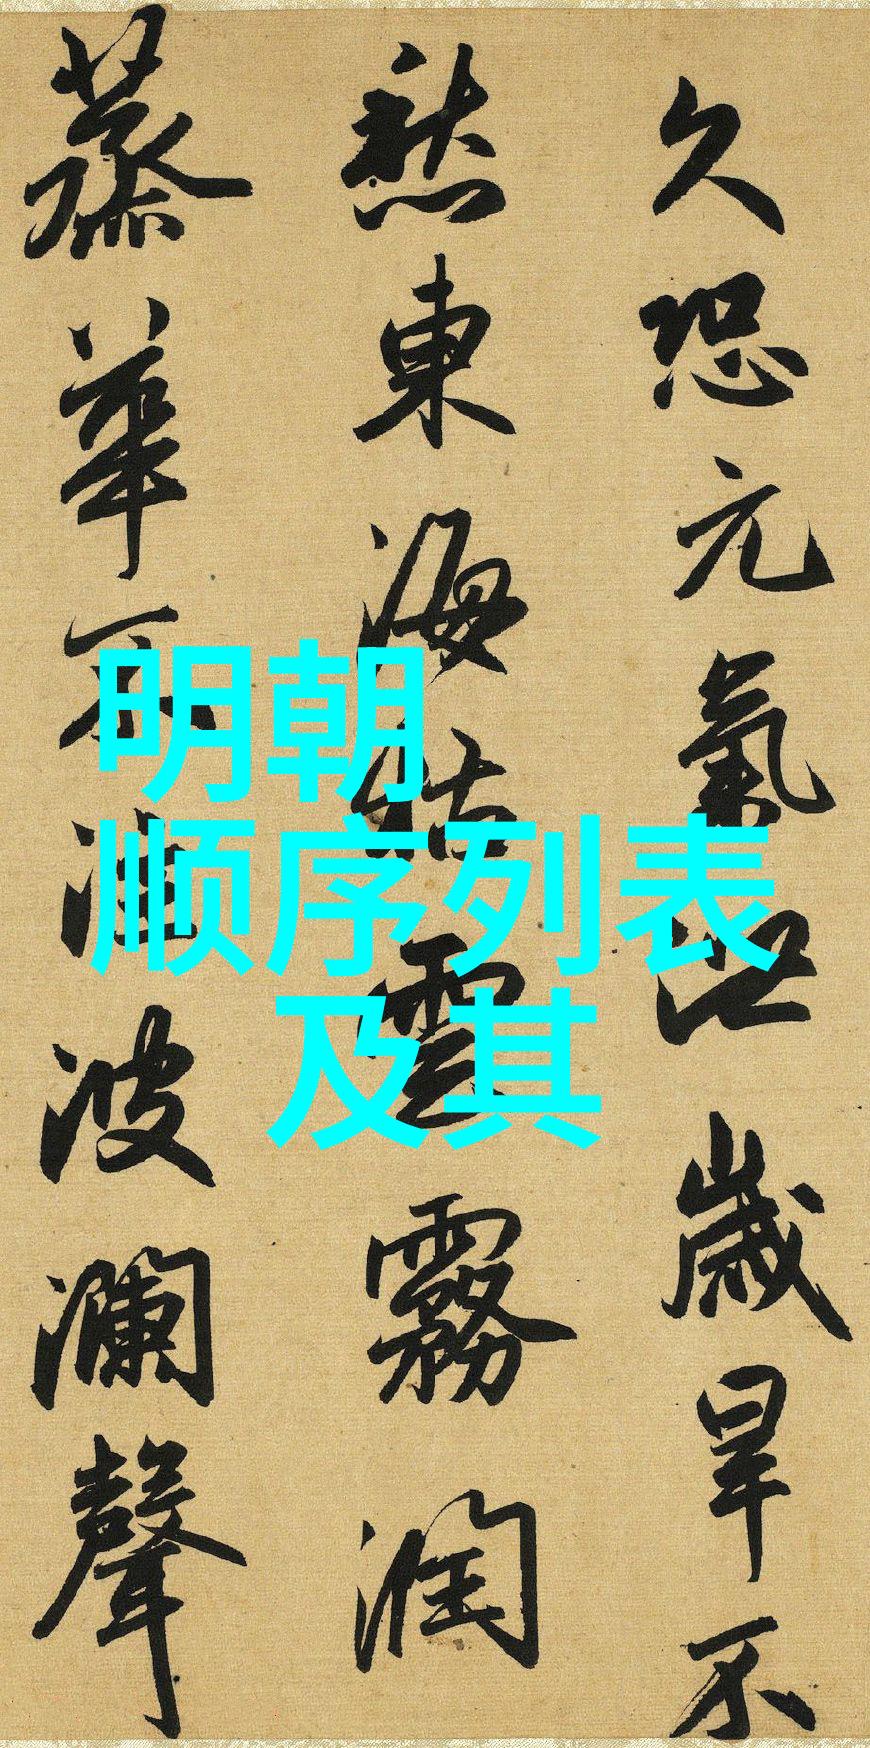 久恐元氣泄歲旱不
愁東海枯雲霧潤
蒸華不注波瀾聲
明朝
顺序列表
及其